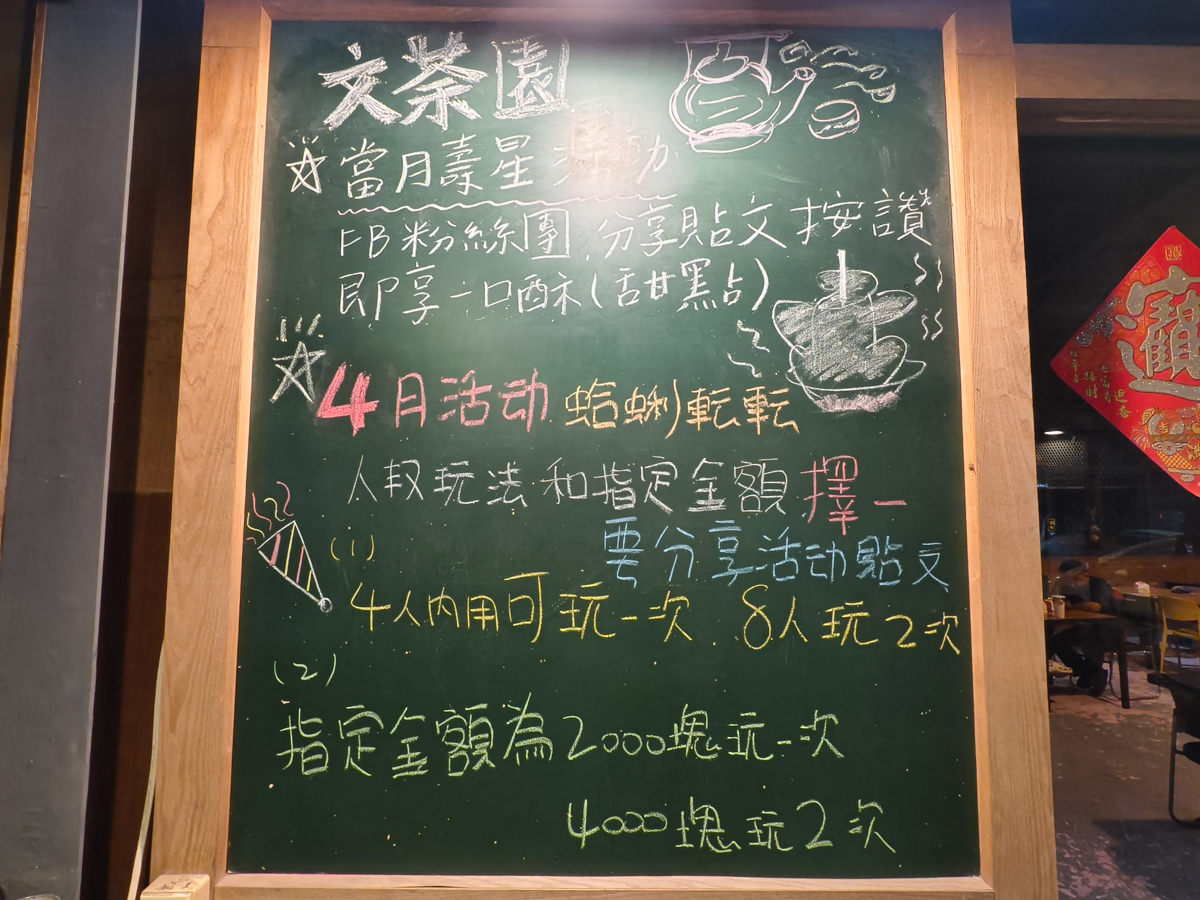 文茶園
當月壽星活动
FB粉絲團,分享貼文按讚
即享一口酥(甜點)
4月活动 蛤蜊転転
人数玩法和指定金額擇一
要分享活动貼文
(1)
4人內用可玩一次 8人玩2次
(2)
指定金額為2000塊玩一次
4000塊玩2次